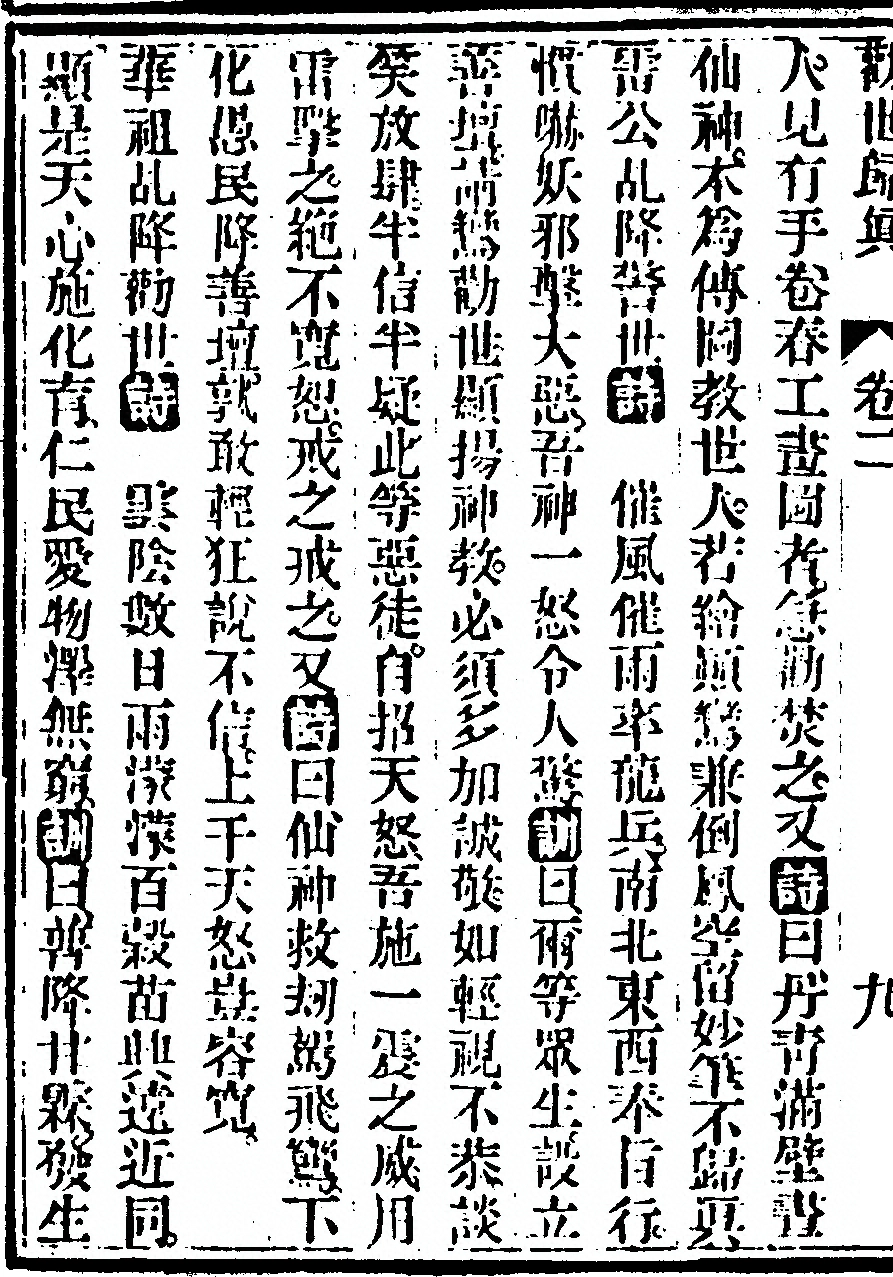 勸世歸眞 卷二 九
人見有手卷春工畫圖者急勸焚之又詩曰丹青滿壁畫
仙神不爲傳圖教世人若繪顚鸞兼倒鳳空留妙筆不歸眞
雷公乩降警世詩 催風催雨率龍兵南北東西奉旨行
慣嚇妖邪擊大惡吾神一怒令人驚訓曰爾等眾生設立
善壇請鸞勸世顯揚神教必須多加誠敬如輕視不恭談
笑放肆半信半疑此等惡徒自招天怒吾施一震之威用
雷擊之絶不寬恕戒之戒之又詩曰仙神救刼鸞飛鸞下
化愚民降善壇孰敢輕狂說不信上干天怒豈容寬
華祖乩降勸世詩 雲陰數日雨濛濛百穀苗興遠近同
顯是天心施化育仁民愛物澤無窮訓曰普降甘霖發生